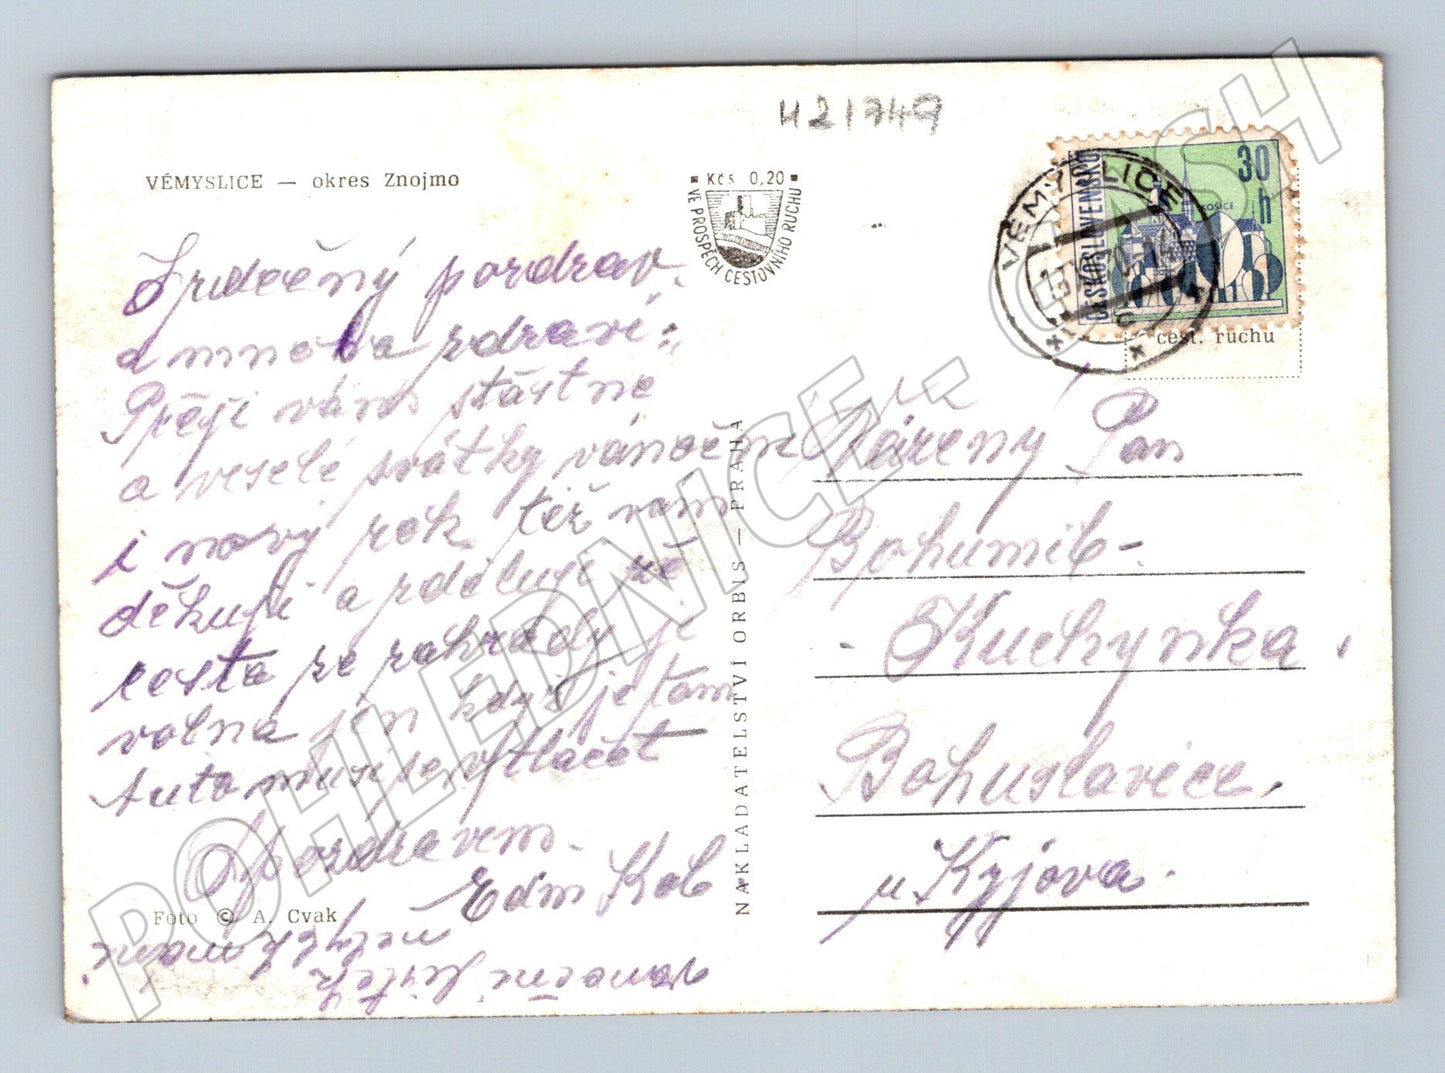 U21749
VÉMYSLICE — okres Znojmo
Kčs 0,20
VE PROSPĚCH CESTOVNÍHO RUCHU
VÉMYSLICE
ČESKOSLOVENSKO
30 h
KOŠICE
cest. ruchu
Srdečný pozdrav
a mnoho zdraví:
Přeji vám šťastné
a veselé svátky vánoční
i nový rok též vam
děkuji a zděluji že
cesta ze zahrdby je
volná jen když je tam
Auto musi se vytlačet
S pozdravem.
Edm Kob
vanoční listek
nemam.
Foto © A. Cvak
NAKLADATELSTVÍ ORBIS — PRAHA
Váženy Pan
Bohumil -
Kuchynka.
Bohuslavice.
u Kyjova.
POHLEDNICE - CASH